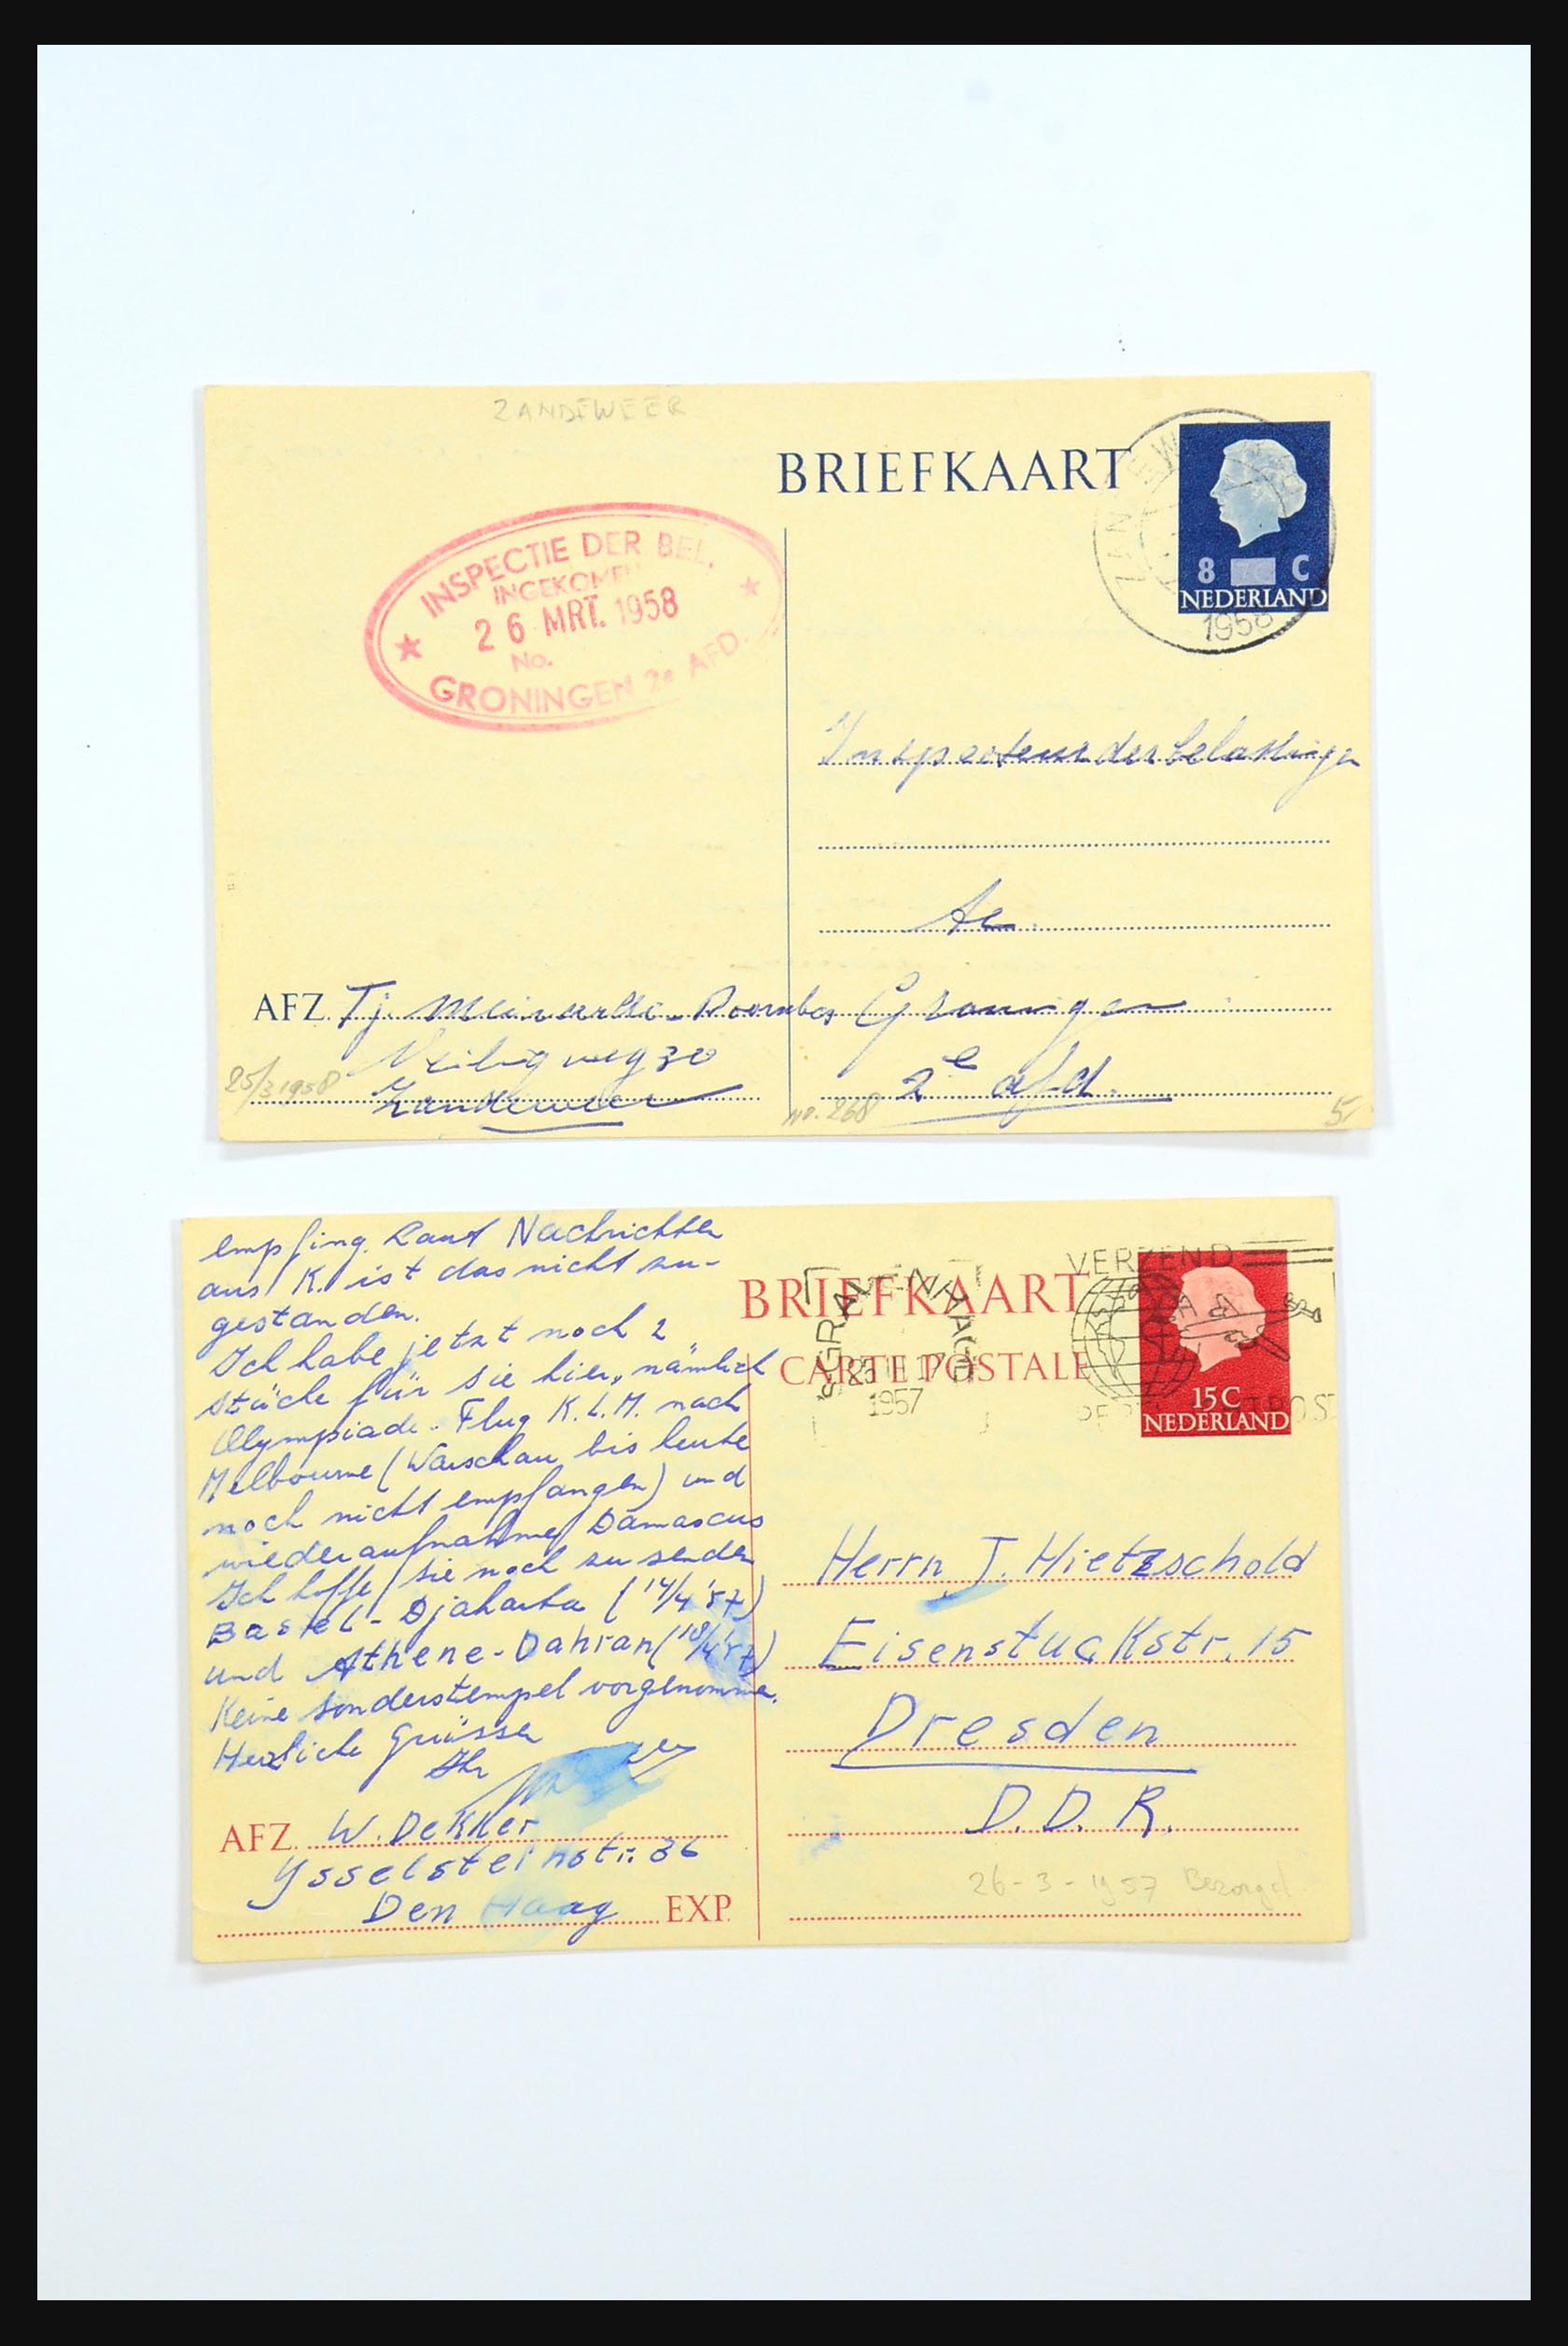 ZANDEWEER
BRIEFKAART
8 C
NEDERLAND
1958
INSPECTIE DER BEL.
INGEKOMEN
26 MRT. 1958
No.
GRONINGEN 2e AFD.
Inspecteur der belastingen
te
AFZ. Tj. Doornbos Groningen
weg 30
2e afd.
25/3 1958 Zandeweer
no. 268
5,-
empfing. Laut Nachrichten
aus K. ist das nicht zu-
gestanden.
Ich habe jetzt noch 2
stücke für sie hier, nämlich
Olympiade. Flug K.L.M. nach
Melbourne (Warschau bis heute
noch nicht empfangen) und
wiederaufnahme Damascus
Ich hoffe sie noch zu senden
Basel - Djakarta (14/4 '57)
und Athene - Dahran (18/4 '57)
Keine sonderstempel vorgenomme.
Herzliche Grüsse
Ihr
AFZ. W. Dekker
Ysselsteinstr. 36
Den Haag EXP.
BRIEFKAART
CARTE POSTALE
'SGRAVENHAGE
1957
VERZEND
15 C
NEDERLAND
Herrn J. Hietzschold
Eisenstuckstr. 15
Dresden
D.D.R.
26-3-1957 Bezorgd